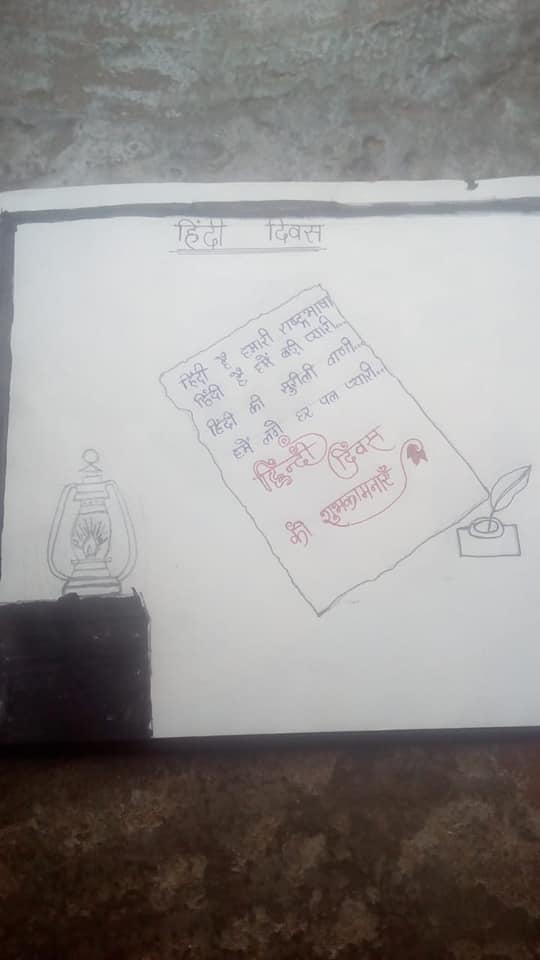 हिंदी दिवस
हिंदी है हमारी राष्ट्रभाषा
हिंदी है हमें बड़ी प्यारी...
हिंदी की सुरीली वाणी...
हमें लगे हर पल प्यारी...
हिन्दी दिवस
की शुभकामनाएँ